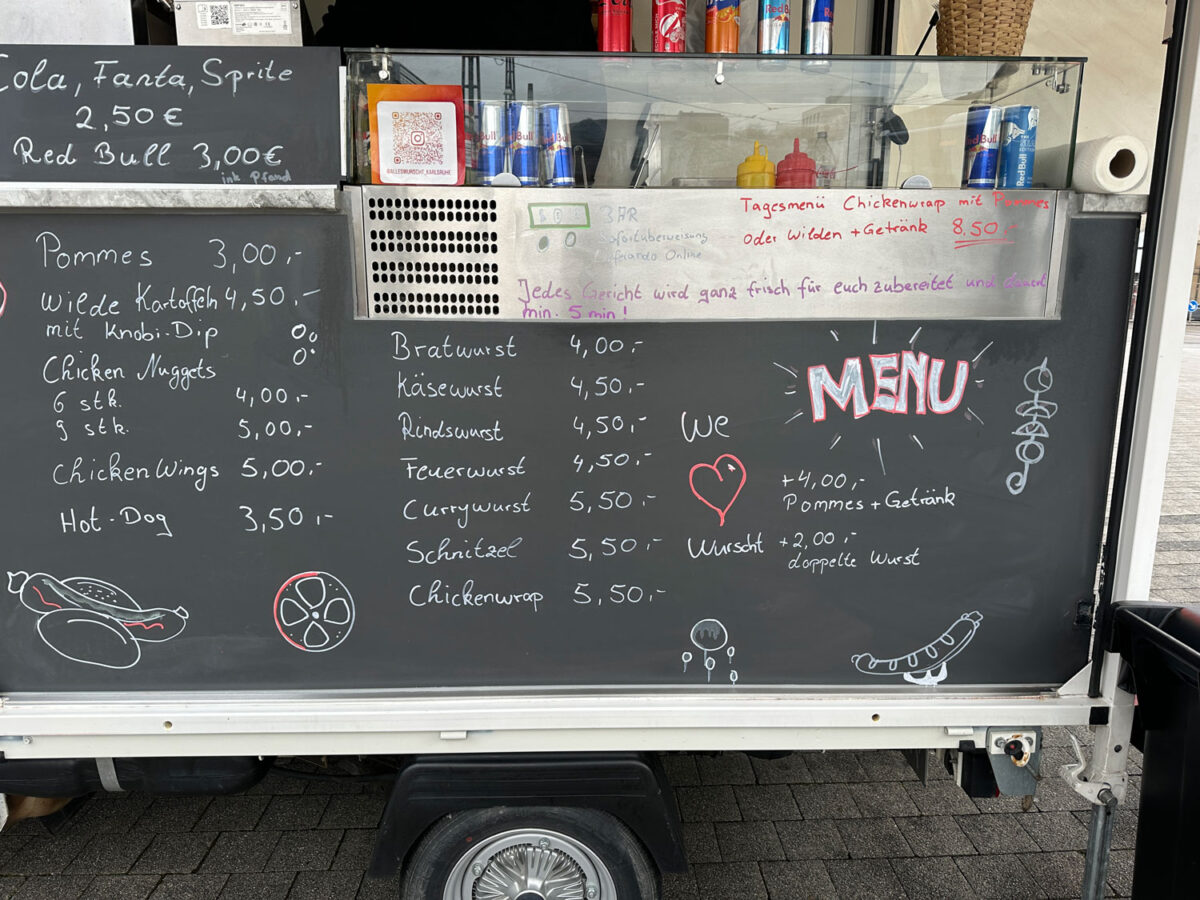 Cola, Fanta, Sprite
2,50 €
Red Bull 3,00€
ink Pfand
@ALLESWURSCHT_KARLSRUHE
Red Bull
Red Bull
Red Bull
Red Bull
Bull
Bull
Red Bull
BAR
Sofortüberweisung
Online
Tagesmenü Chickenwrap mit Pommes
oder Wilden + Getränk 8,50,-
Jedes Gericht wird ganz frisch für euch zubereitet und dauert
min. 5 min!
Pommes 3,00,-
Wilde Kartoffeln 4,50,-
mit Knobi-Dip
Chicken Nuggets
6 stk. 4,00,-
9 stk. 5,00,-
Chicken Wings 5,00,-
Hot-Dog 3,50,-
Bratwurst 4,00,-
Käsewurst 4,50,-
Rindswurst 4,50,-
Feuerwurst 4,50,-
Currywurst 5,50,-
Schnitzel 5,50,-
Chickenwrap 5,50,-
We
Wurscht
MENU
+4,00,-
Pommes + Getränk
+2,00,-
doppelte Wurst